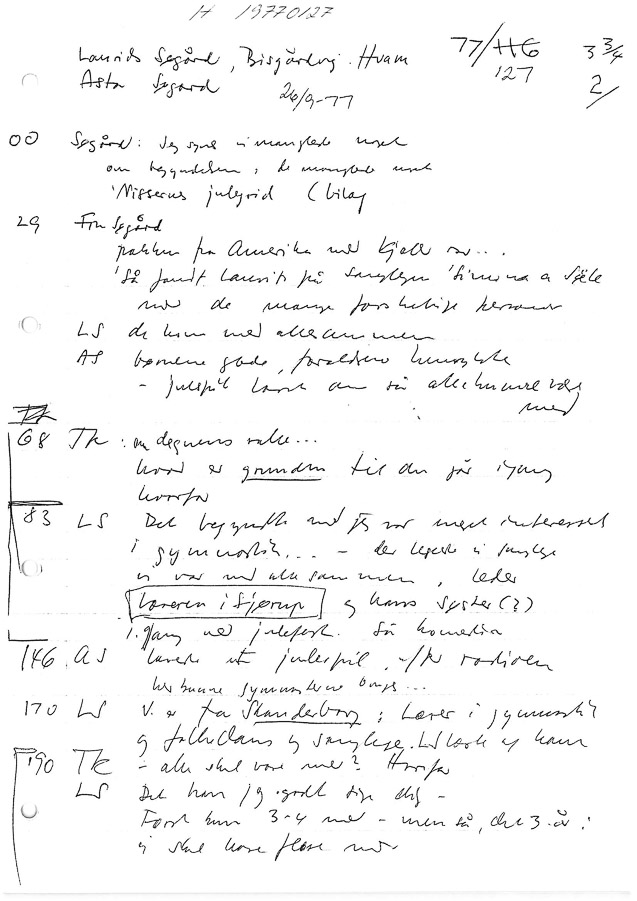 H 19770127
Laurids Søgård, Bisgårdvej. Hvam 77/HG 3 3/4
Asta Søgård 127 2/
26/9-77
00 Søgård: Jeg synes vi manglede noget
om begyndelsen, de manglede noget
'Nissernes juletid (bilag
29 Fru Søgård
pakken fra Amerika med Kjoler
'Så fandt Laurits på sanglegen
med de mange forskellige personer
LS de kom med allesammen
AS børnene glade, forældrene
- julespil så alle kunne være
med
TK
68 TK: om degnens
hvad er grunden til du går igang
hvorfor
83 LS Det begyndte med jeg var meget interesseret
i gymnastik... - der legede vi sanglege
vi var med alle sammen, leder
Læreren i Sjørup og hans søster (?)
1. gang ved julefest. Så komedie
146 AS lavede et julespil, radioen
her kunne gymnastikken bruges...
170 LS V. er fra Skanderborg; Lærer i gymnastik
og folkedans og sanglege. LS lærte af ham
190 TK - alle skal være med? Hvorfor
LS Det kan jeg godt sige dig -
Først kun 3-4 med - men så, det 3. år:
vi skal have flere med